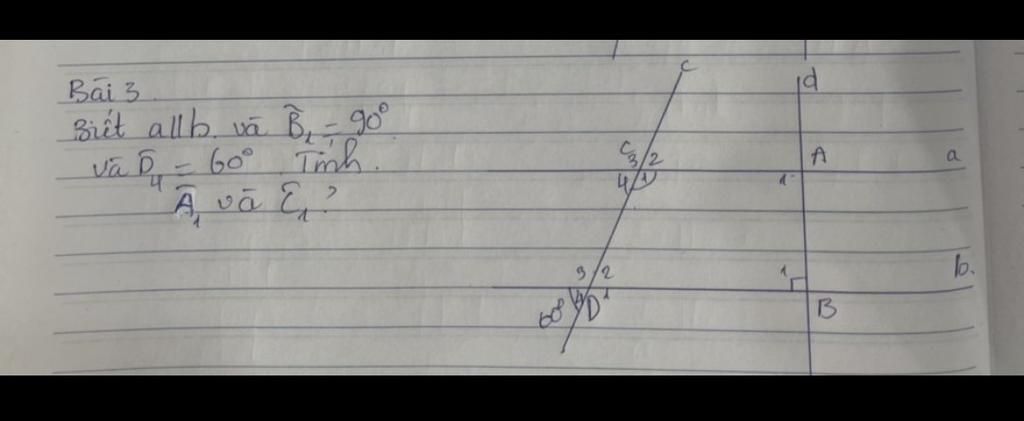 Bài 3
Biết a//b. và B̂₁ = 90°
và D̂₄ = 60° Tính.
Â₁ và Ĉ₁?
c
d
C 3 2
A
a
4 1
1
3 2
1
b.
60° 4 D 1
B